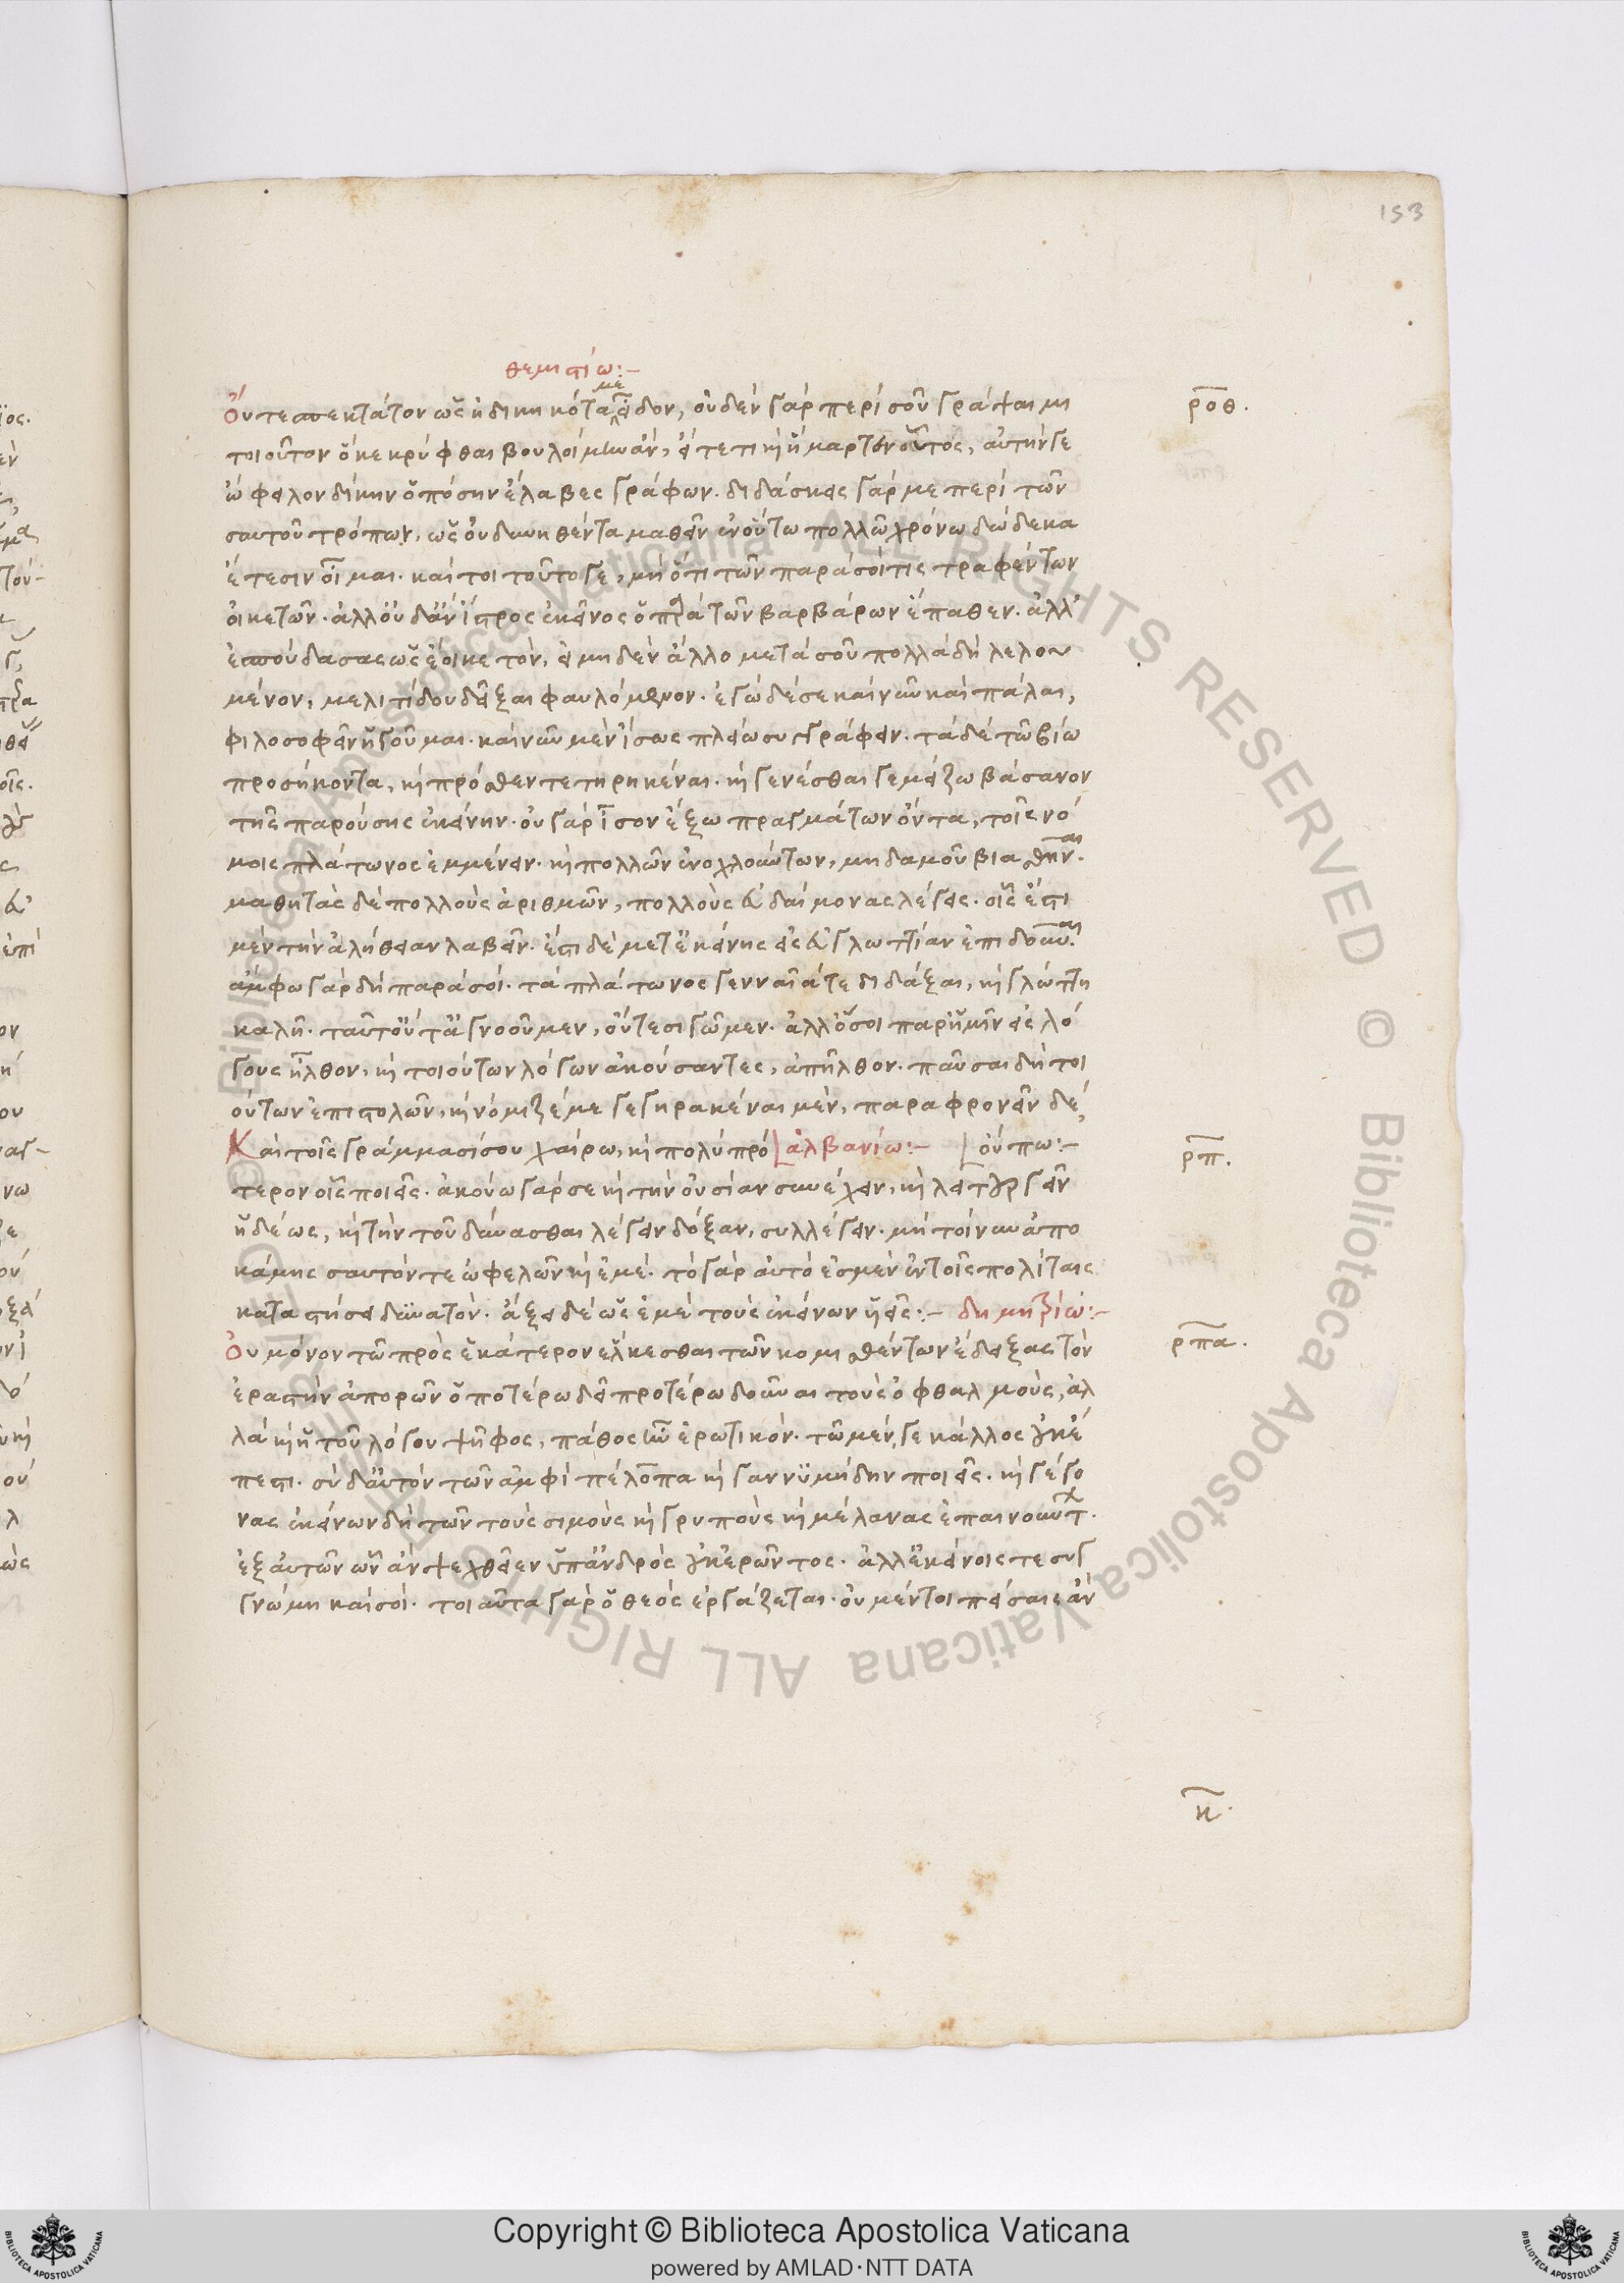 153
θεμιστίω:-
Οὔτε σπεκτάτον ὡς ἠδικηκότα με εἶδον, οὐδὲν γὰρ περὶ σοῦ γράψαι μοι
ροθ.
τοιοῦτον ὃ κεκρύφθαι βουλοίμην ἂν, εἴτε τι καὶ ἥμαρτεν οὗτος, αὐτὴν γε
ὤφελον δίκην ὁπόσην ἔλαβες γράφων. διδάσκεις γάρ με περὶ τῶν
σαυτοῦ τρόπων, ὡς οὐ δυνηθέντα μαθεῖν ἐν οὕτω πολλῶ χρόνω δώδεκα
ἔτεσιν οἶμαι. καί τοι τοῦτό γε, μὴ ὅτι τῶν παρὰ σοί τις τραφέντων
οἰκετῶν. ἀλλ' οὐδ' ἂν ἴστρος ἐκεῖνος ὁ μετὰ τῶν βαρβάρων ἔπαθεν. ἀλλ'
ἐσπούδασας ὡς ἔοικε τὸν, εἰ μηδὲν ἄλλο μετὰ σοῦ πολλὰ δὴ λελου
μένον, μελιτίδου δεῖξαι φαυλόμενον. ἐγὼ δέ σε καὶ νῦν καὶ πάλαι,
φιλοσοφεῖν ἡγοῦμαι. καὶ νῦν μὲν ἴσως πλείω συγγράφειν. τὰ δὲ τῶ βίω
προσήκοντα, καὶ πρόσθεν τετηρηκέναι. καὶ γενέσθαι γε μείζω βάσανον
τῆς παρούσης ἐκείνην. οὐ γὰρ ἶσον ἔξω πραγμάτων ὄντα, τοῖς νό
μοις πλάτωνος ἐμμένειν. καὶ πολλῶν ἐνοχλούντων, μηδαμοῦ βιασθῆναι.
μαθητὰς δὲ πολλοὺς ἀριθμῶν, πολλοὺς εὐδαίμονας λέγεις. οἷς ἔστι
μὲν τὴν ἀλήθειαν λαβεῖν. ἔστι δὲ μετ' ἐκείνης εἰς εὐγλωττίαν ἐπιδοῦναι.
ἄμφω γὰρ δὴ παρὰ σοί. τὰ πλάτωνος γενναῖά τε διδάξαι, καὶ γλώττη
καλῆ. ταῦτ' οὔτ' ἀγνοοῦμεν, οὔτε σιγῶμεν. ἀλλ' ὅσοι παρ' ἡμῖν εἰς λό
γους ἦλθον, καὶ τοιούτων λόγων ἀκούσαντες, ἀπῆλθον. παῦσαι δὴ τοι
ούτων ἐπιστολῶν, καὶ νόμιζέ με γεγηρακέναι μὲν, παραφρονεῖν δὲ,
Καὶ τοῖς γράμμασί σου χαίρω, καὶ πολὺ πρό[ἀλβανίω:- [οὔπω:-
ρπ.
τερον οἷς ποιεῖς. ἀκούω γάρ σε καὶ τὴν οὐσίαν συνέχειν, καὶ λειτουργεῖν
ἡδέως, καὶ τὴν τοῦ δύνασθαι λέγειν δόξαν, συλλέγειν. μὴ τοίνυν ἀπο
κάμης σαυτόν τε ὠφελῶν καὶ ἐμέ. τὸ γὰρ αὐτὸ ἐσμὲν ἐν τοῖς πολίταις
καταστήσει δυνατόν. ἄξει δὲ ὡς ἐμὲ τοὺς ἐκείνων ὑεῖς:- δημητρίω:-
Οὐ μόνον τῶ πρὸς ἑκάτερον ἕλκεσθαι τῶν κομισθέντων ἔδειξας τὸν
ρπα.
ἐραστὴν ἀπορῶν ὁποτέρω δεῖ προτέρω δοῦναι τοὺς ὀφθαλμοὺς, ἀλ
λὰ καὶ ἡ τοῦ λόγου ψῆφος, πάθος ἦν ἐρωτικόν. τῶ μὲν γε κάλλος οὐκ ἔ
πεστι. σὺ δ' αὐτὸν τῶν ἀμφὶ πέλοπα καὶ γαννυμήδην ποιεῖς. καὶ γέγο
νας ἐκείνων δὴ τῶν τοὺς σιμοὺς καὶ γρυποὺς καὶ μέλανας ἐπαινούντων.
ἐξ αὐτῶν ὧν ἂν ψεχθεῖεν ὑπ' ἀνδρὸς οὐκ ἐρῶντος. ἀλλ' ἐκείνοις τε συγ
γνώμη καὶ σοί. τοιαῦτα γὰρ ὁ θεὸς ἐργάζεται. οὐ μέντοι πείσαις ἂν
κ.
Copyright © Biblioteca Apostolica Vaticana
powered by AMLAD·NTT DATA